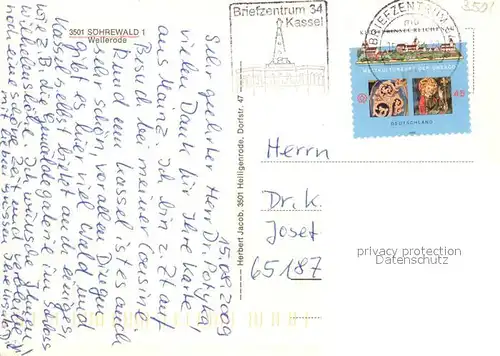 3501 SÖHREWALD 1
Wellerode
15.08.2009
Sehr geehrter Herr Dr.
vielen Dank für Ihre Karte
aus Mainz. Ich bin z. Zt auf
Besuch bei meiner Cousine
Rund um Kassel ist es auch
sehr schön, vor allen Dingen
gibt es hier viel Wald und
Kassel selbst bietet auch einiges,
wie z.B die Gemäldegalerie im Schloss
Wilhelmshöhe. Ich wünsche Ihnen
noch eine schöne Zeit und verbleibe
mit lieben Grüssen
Herbert Jacob, 3501 Heiligenrode, Dorfstr. 47
Briefzentrum 34
Kassel
BRIEFZENTRUM
WELTKULTURERBE DER UNESCO
45
DEUTSCHLAND
Herrn
Dr. K.
Josef
65187
privacy protection
Datenschutz